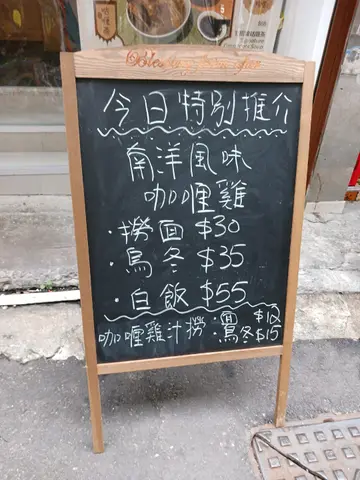 今日特別推介
南洋風味
咖喱雞
·撈面 $30
·烏冬 $35
·白飯 $55
咖喱雞汁撈·面 $12
·烏冬 $15